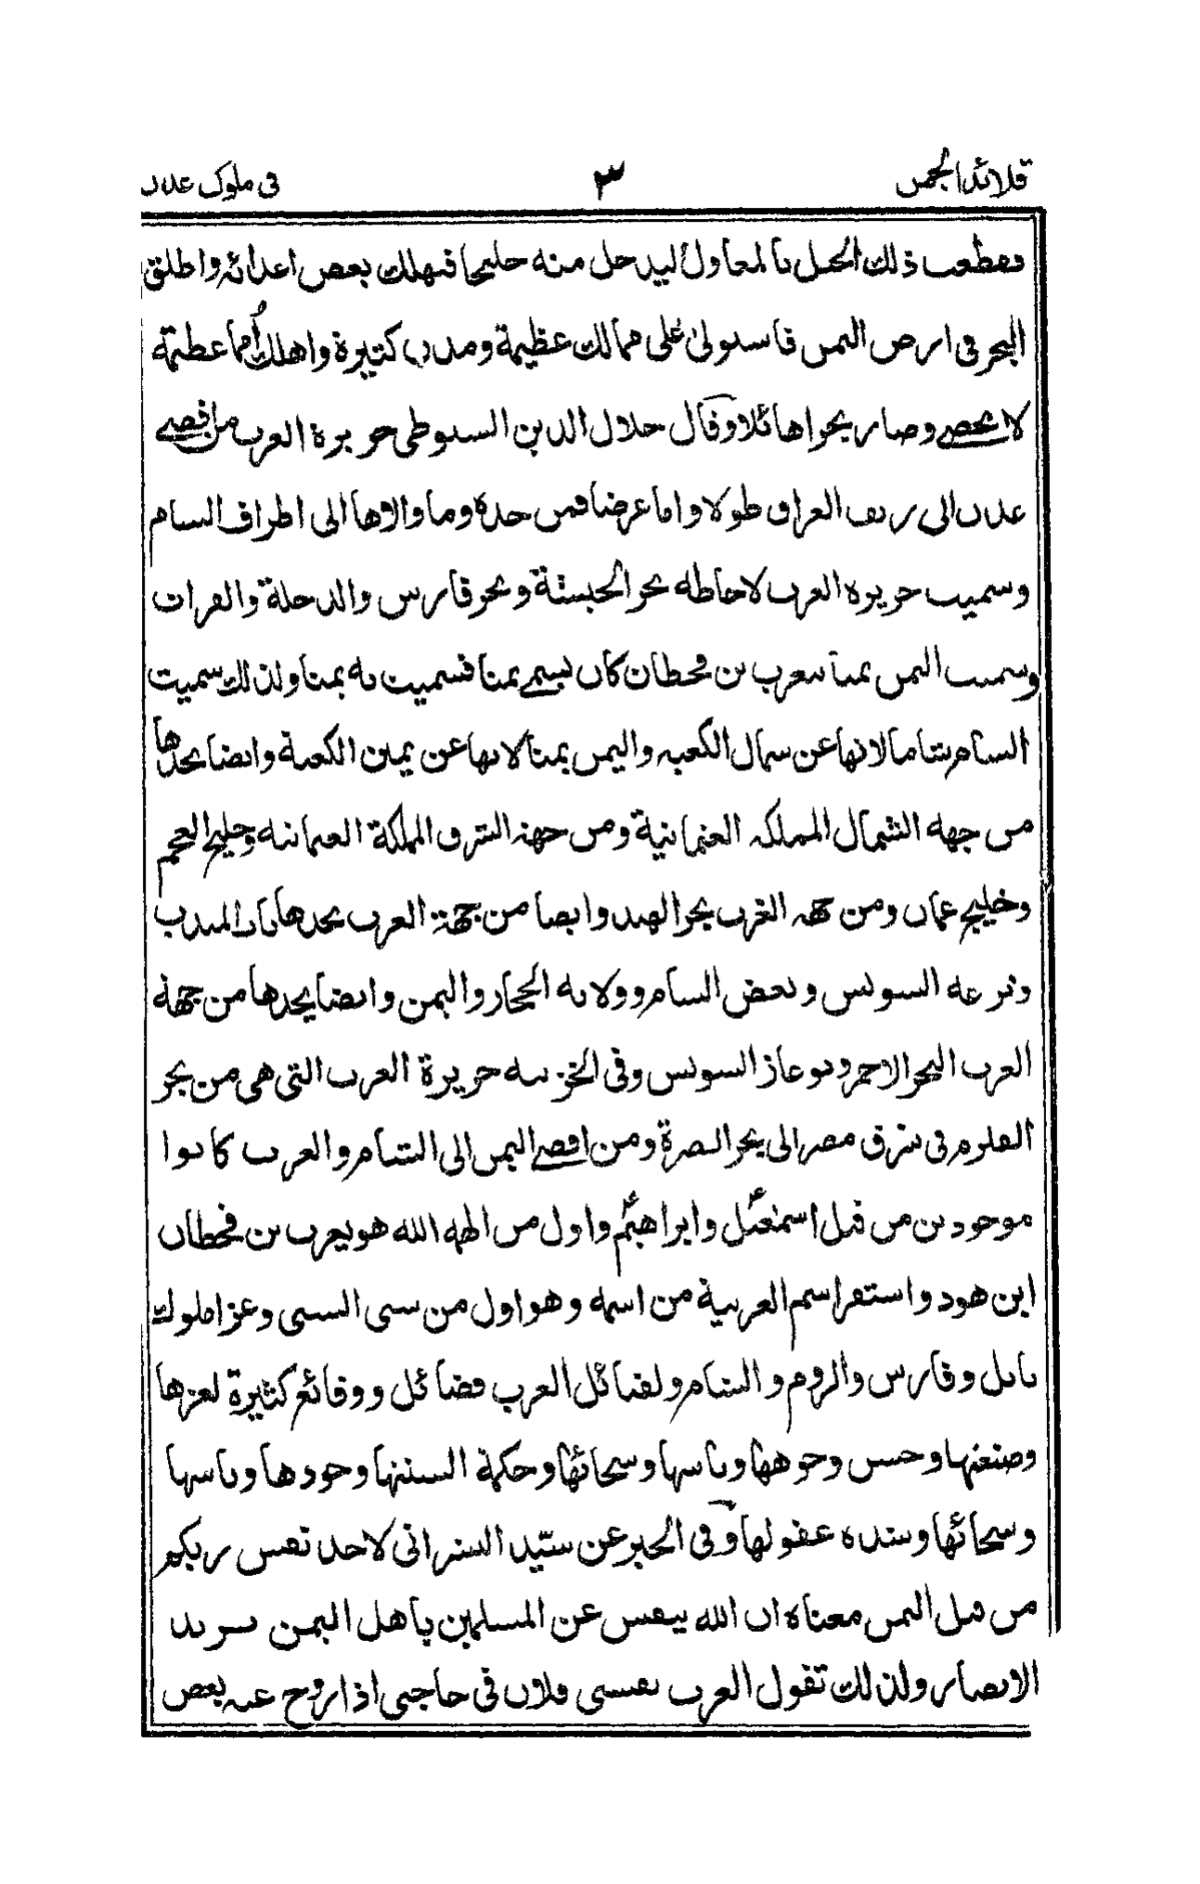 قلائد الجمن ٣ في ملوك عدن
فقطعت ذلك الجبل بالمعاول ليدخل منه خليجا فيهلك بعض اعدائه واطلق
البحر في ارض اليمن فاستولى على ممالك عظيمة ومدن كثيرة واهلك أمما عظيمة
لا تحصى وصار بحرا هائلا وقال جلال الدين السيوطي جزيرة العرب من اقصى
عدن الى ريف العراق طولا واما عرضا فمن جدة وما والاها الى اطراف الشام
وسميت جزيرة العرب لاحاطة بحر الحبشة وبحر فارس والدجلة والفرات
وسميت اليمن يمنا يعرب بن قحطان كان يسمى يمنا فسميت به يمنا ولذلك سميت
الشام شاما لانها عن شمال الكعبة واليمن يمنا لانها عن يمين الكعبة وايضا يحدها
من جهة الشمال المملكة العثمانية ومن جهة الشرق المملكة العمانية وخليج العجم
وخليج عمان ومن جهة الغرب بحر الهند وايضا من جهة العرب يحدها باب المندب
وترعة السويس وبعض الشام وولاية الحجاز واليمن وايضا يحدها من جهة
العرب البحر الاحمر وبوغاز السويس وفي جزيرة العرب التي هي من بحر
القلزم في شرق مصر الى بحر البصرة ومن اقصى اليمن الى الشام والعرب كانوا
موجودين من قبل اسمعيل وابراهيم واول من الهمه الله هو يعرب بن قحطان
ابن هود واستقر اسم العربية من اسمه وهو اول من سبى السبي وغزا ملوك
بابل وفارس والروم والشام ولقبائل العرب فضائل ووقائع كثيرة لعزها
ومنعتها وحسن وجوهها وباسها وسخائها وحكمة السنتها وجودها وباسها
وسخائها وشدة عقولها وفي الخبر عن سيد البشر اني لاجد نفس ربكم
من قبل اليمن معناه ان الله ينفس عن المسلمين باهل اليمن يريد
الانصار ولذلك تقول العرب نفسني فلان في حاجتي اذا روح عنه بعض